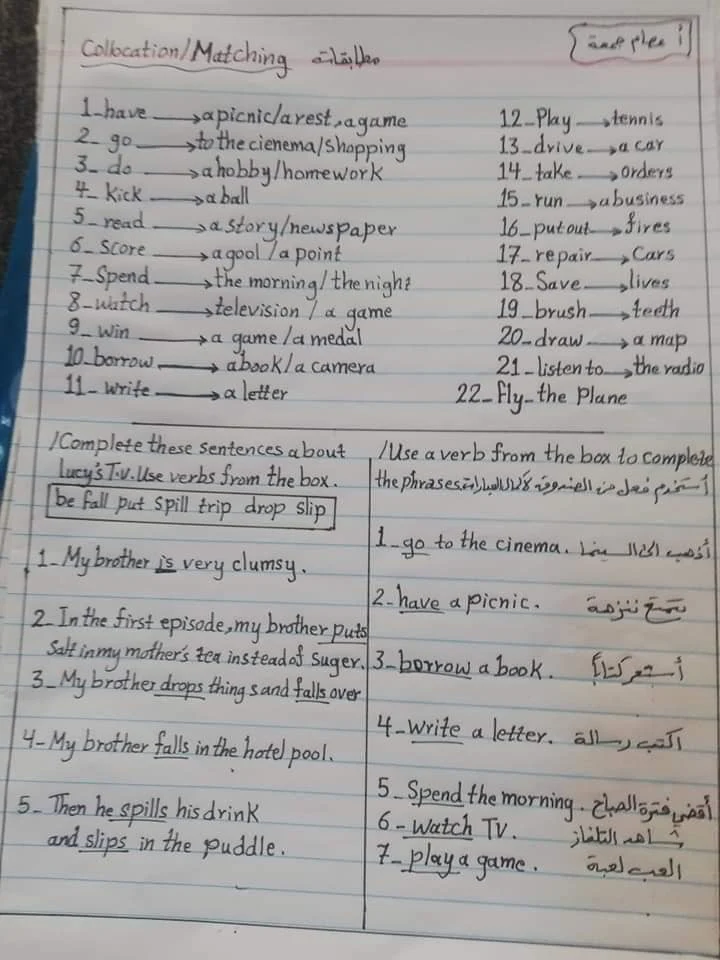 Collocation/Matching مطابقات
1_have → a picnic/a rest, a game
2_ go → to the cienema/shopping
3_ do → a hobby/homework
4_ kick → a ball
5_ read → a story/newspaper
6_ Score → a gool / a point
7_ Spend → the morning/the night
8_watch → television / a game
9_ win → a game /a medal
10_borrow → a book/a camera
11_ write → a letter
12_Play → tennis
13_drive → a car
14_take → orders
15_run → a business
16_put out → fires
17_repair → Cars
18_Save → lives
19_brush → teeth
20_draw → a map
21_listen to → the radio
22_Fly_the Plane
/Complete these sentences about
Lucy's T.V. Use verbs from the box.
be fall put spill trip drop slip
1_My brother is very clumsy.
2_In the first episode, my brother puts
Salt in my mother's tea instead of Suger.
3_My brother drops things and falls over
4_My brother falls in the hotel pool.
5_Then he spills his drink
and slips in the puddle.
/Use a verb from the box to complete
the phrases. أستخدم فعل من الصندوق
1_go to the cinema. أذهب الى السينما
2_have a picnic.
3_borrow a book. أستعير كتاباً
4_Write a letter. اكتب رسالة
5_Spend the morning. أقضي فترة الصباح
6_Watch TV. شاهد التلفاز
7_play a game. العب لعبة